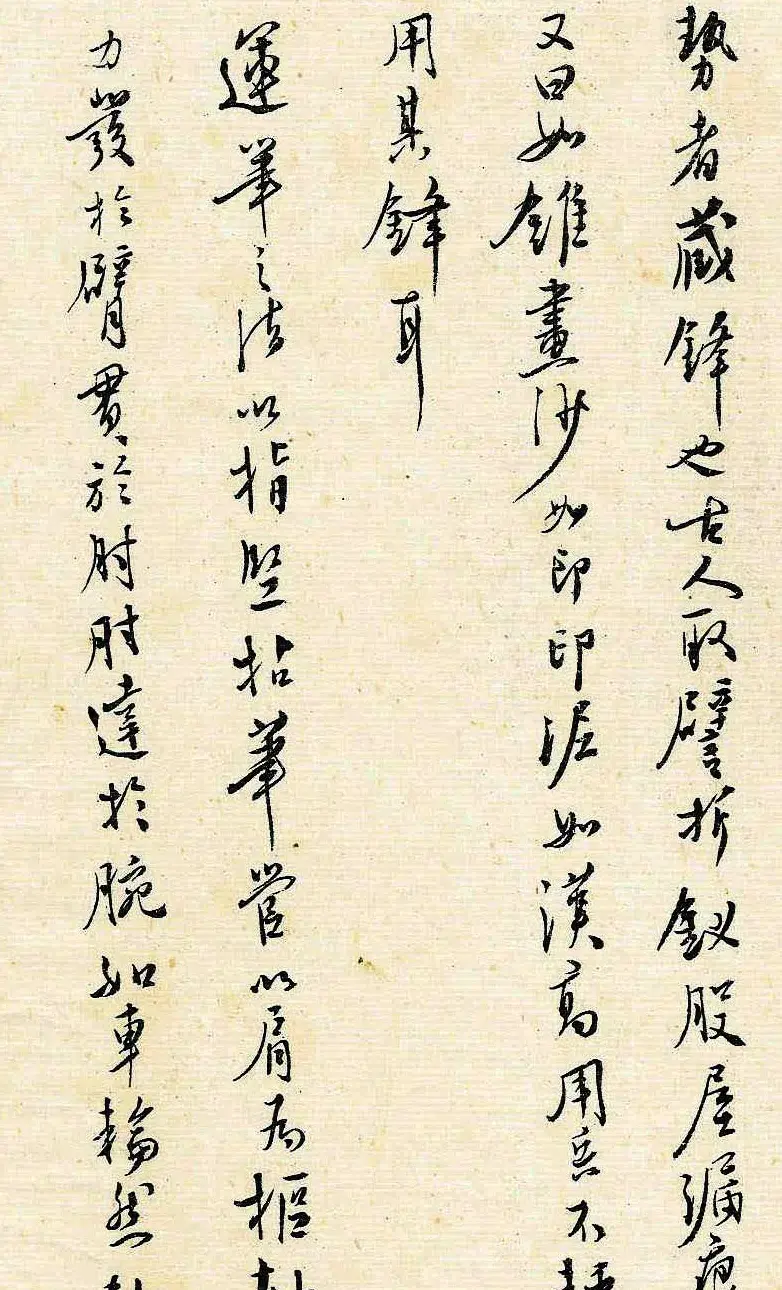 勢者藏鋒也古人取譬折釵股屋漏痕
又曰如錐畫沙如印印泥如漢高用兵不
用其鋒耳
運筆之法以指堅拈筆管以肩為樞
力發於臂貫於肘肘達於腕如車輪然